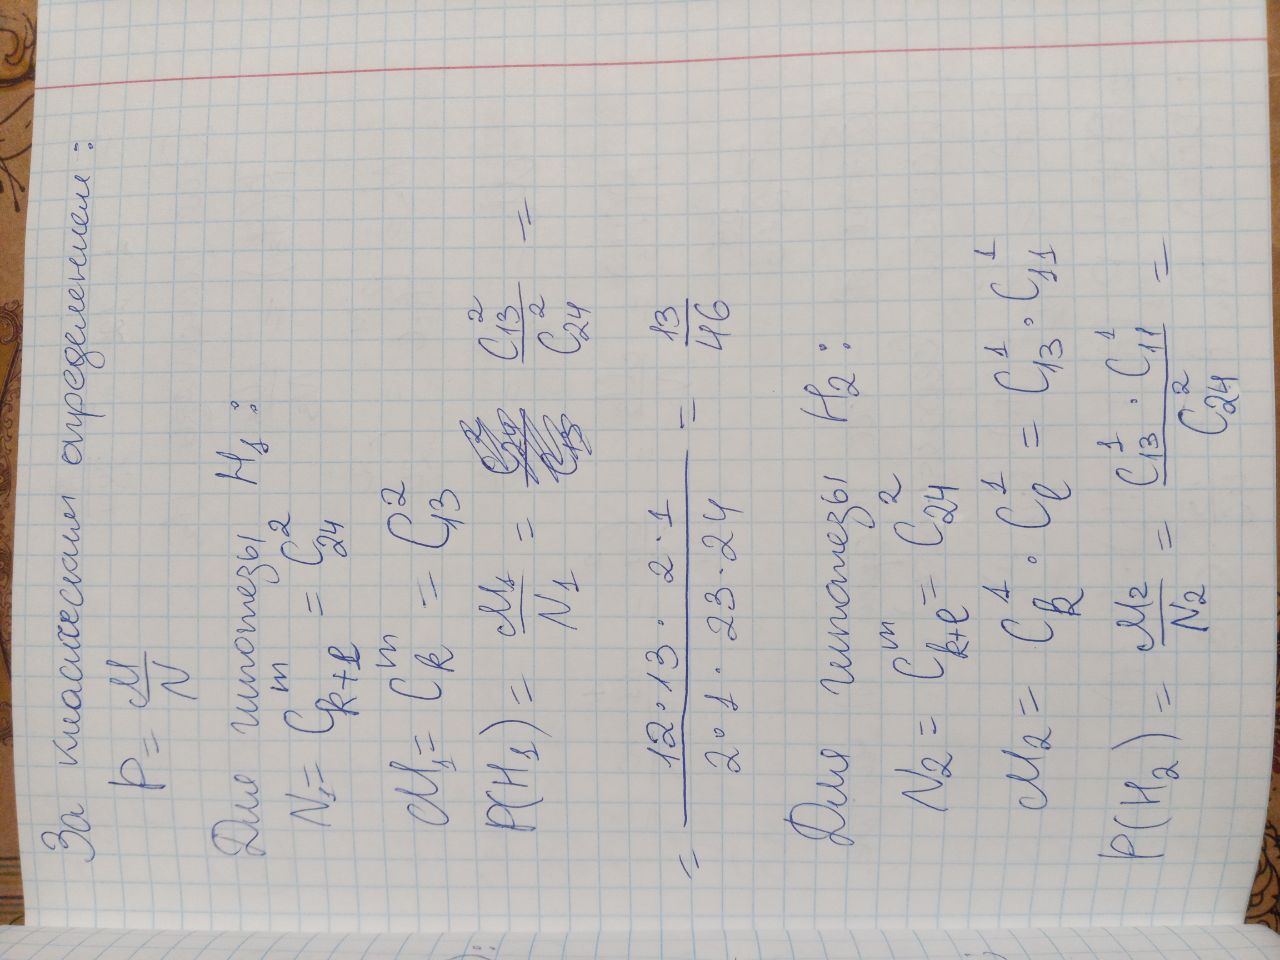 За класическим определением:
P = M/N
Для гипотезы H₁:
N₁ = C_{k+l}^m = C_{24}^2
M₁ = C_k^m = C_{13}^2
P(H₁) = M₁/N₁ = C_{13}^2/C_{24}^2 =
= (12·13· 2·1)/(2·1· 23·24) = 13/46
Для гипотезы H₂:
N₂ = C_{k+l}^m = C_{24}^2
M₂ = C_k^1 · C_l^1 = C_{13}^1 · C_{11}^1
P(H₂) = M₂/N₂ = (C_{13}^1 · C_{11}^1)/C_{24}^2 =